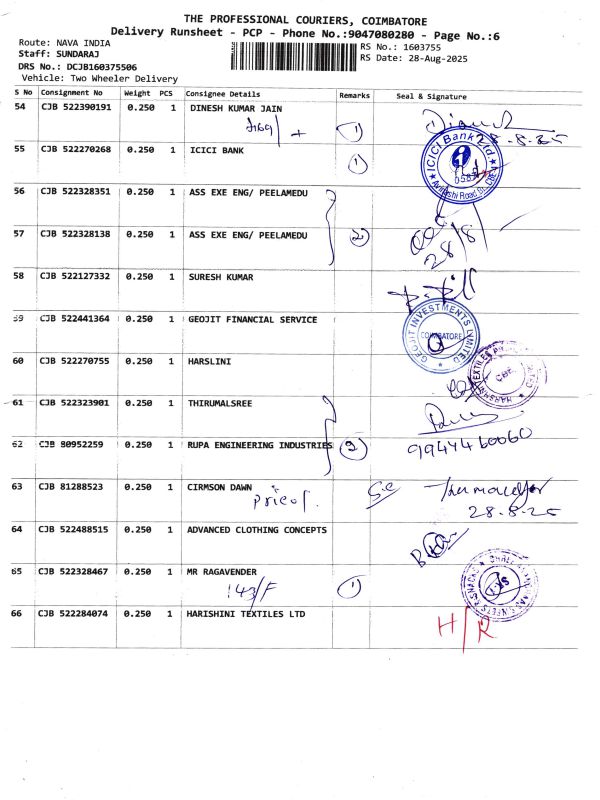 THE PROFESSIONAL COURIERS, COIMBATORE
Delivery Runsheet - PCP - Phone No.:9047080280 - Page No.:6
Route: NAVA INDIA
Staff: SUNDARAJ
DRS No.: DCJB160375506
Vehicle: Two Wheeler Delivery
RS No.: 1603755
RS Date: 28-Aug-2025
S No Consignment No Weight PCS Consignee Details Remarks Seal & Signature
54 CJB 522390191 0.250 1 DINESH KUMAR JAIN
1
28-8-25
55 CJB 522270268 0.250 1 ICICI BANK
1
ICICI Bank Ltd
56 CJB 522328351 0.250 1 ASS EXE ENG/ PEELAMEDU
57 CJB 522328138 0.250 1 ASS EXE ENG/ PEELAMEDU
2
28/8
58 CJB 522127332 0.250 1 SURESH KUMAR
59 CJB 522441364 0.250 1 GEOJIT FINANCIAL SERVICE
GEOJIT INVESTMENTS LIMITED
COIMBATORE
60 CJB 522270755 0.250 1 HARSLINI
CBE
61 CJB 522323901 0.250 1 THIRUMALSREE
62 CJB 80952259 0.250 1 RUPA ENGINEERING INDUSTRIES
2
9944460060
63 CJB 81288523 0.250 1 CIRMSON DAWN
28-8-25
64 CJB 522488515 0.250 1 ADVANCED CLOTHING CONCEPTS
65 CJB 522328467 0.250 1 MR RAGAVENDER
143/F
1
66 CJB 522284074 0.250 1 HARISHINI TEXTILES LTD
H/R